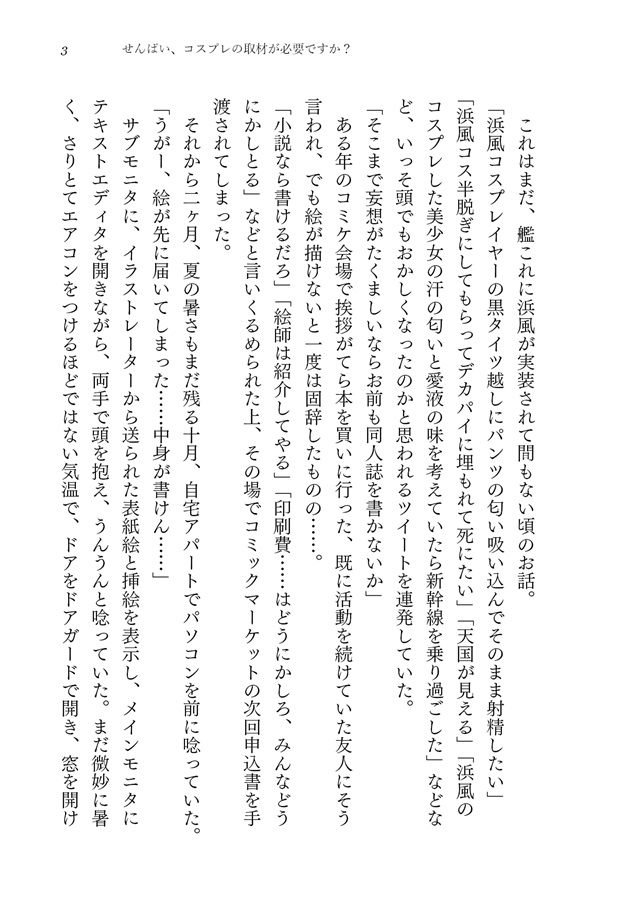 3
せんぱい、コスプレの取材が必要ですか？
これはまだ、艦これに浜風が実装されて間もない頃のお話。
「浜風コスプレイヤーの黒タイツ越しにパンツの匂い吸い込んでそのまま射精したい」
「浜風コス半脱ぎにしてもらってデカパイに埋もれて死にたい」「天国が見える」「浜風の
コスプレした美少女の汗の匂いと愛液の味を考えていたら新幹線を乗り過ごした」などな
ど、いっそ頭でもおかしくなったのかと思われるツイートを連発していた。
「そこまで妄想がたくましいならお前も同人誌を書かないか」
ある年のコミケ会場で挨拶がてら本を買いに行った、既に活動を続けていた友人にそう
言われ、でも絵が描けないと一度は固辞したものの……。
「小説なら書けるだろ」「絵師は紹介してやる」「印刷費……はどうにかしろ、みんなどう
にかしとる」などと言いくるめられた上、その場でコミックマーケットの次回申込書を手
渡されてしまった。
それから二ヶ月、夏の暑さもまだ残る十月、自宅アパートでパソコンを前に唸っていた。
「うがー、絵が先に届いてしまった……中身が書けん……」
サブモニタに、イラストレーターから送られた表紙絵と挿絵を表示し、メインモニタに
テキストエディタを開きながら、両手で頭を抱え、うんうんと唸っていた。まだ微妙に暑
く、さりとてエアコンをつけるほどではない気温で、ドアをドアガードで開き、窓を開け